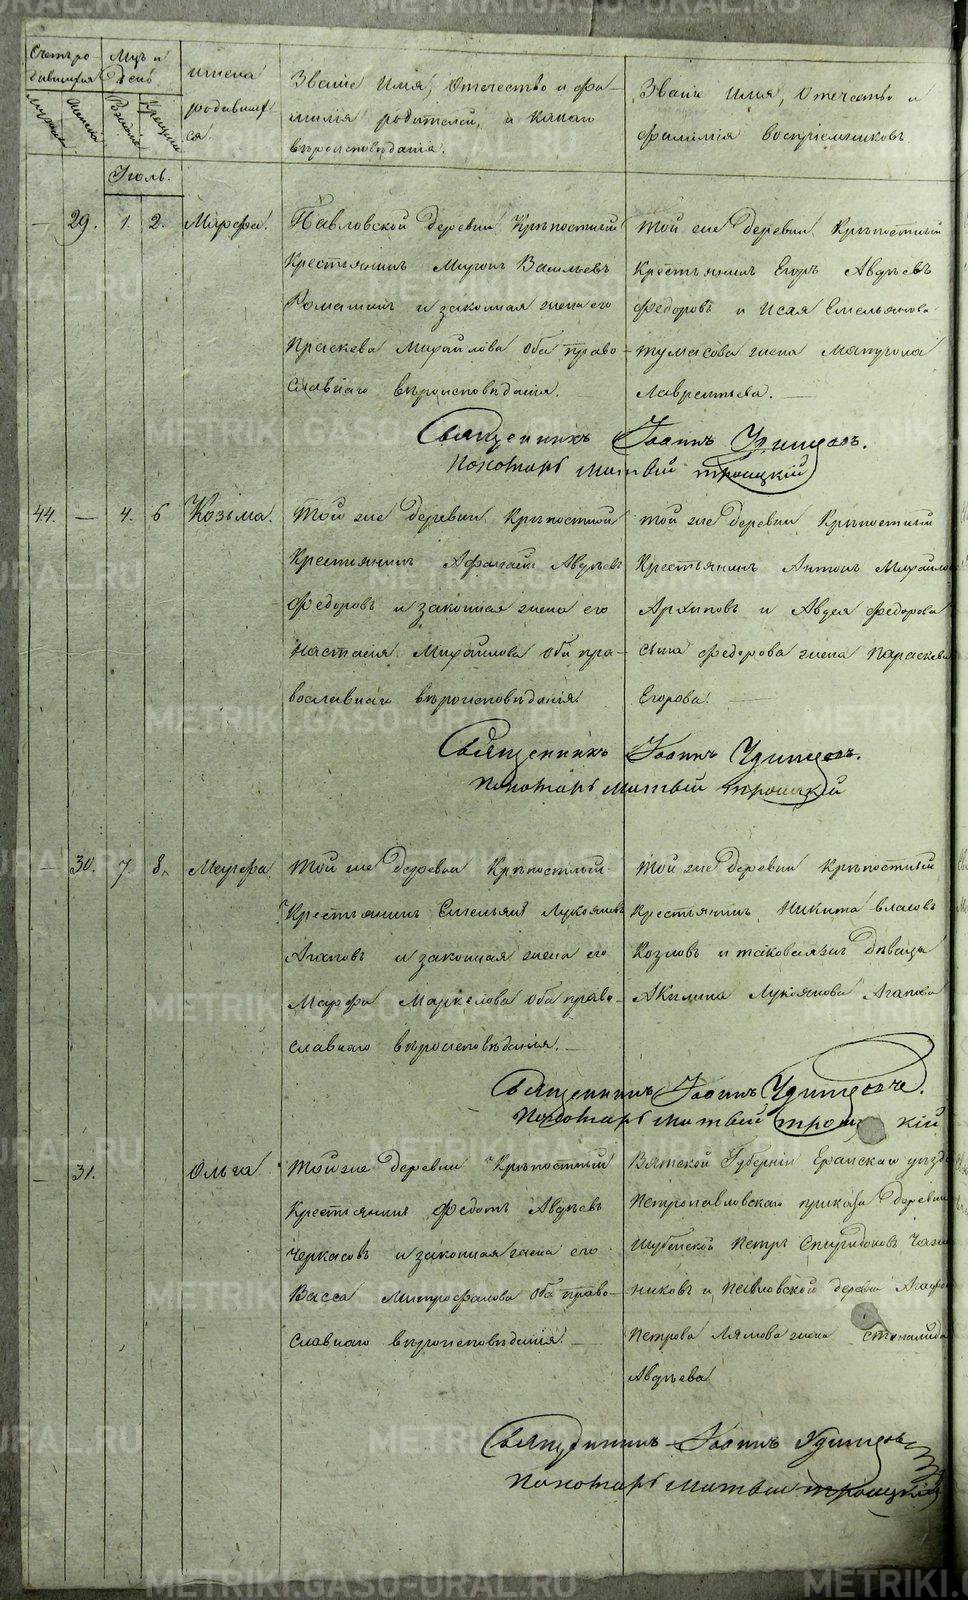 Счетъ ро-
дившихся
Мцъ и
День
имена
родивших-
ся.
Званіе Имя, Отечество и фа-
милія родителей, и какаго
вѣроисповѣданія.
Званіе Имя, Отечество и
фамилія воспріемниковъ.
Іюль.
— 29. 1. 2. Марфа.
Павловской деревни Крѣпостный
Крестьянинъ Миронъ Васильевъ
и законная жена его
Праскева Михайлова оба право-
славнаго вѣроисповѣданія.
той же деревни Крѣпостный
Крестьянинъ Егоръ Авдѣевъ
Федоровъ и Исая Емельянова
жена
Лаврентьева.
Священникъ Іоаннъ Удинцовъ.
Пономарь Матвѣй Троицкій
44. — 4. 6 Козьма.
Той же деревни Крѣпостной
Крестьянинъ Афанасій Авдѣевъ
Федоровъ и законная жена его
Настасія Михайлова оба пра-
вославнаго вѣроисповѣданія.
той же деревни Крѣпостный
Крестьянинъ Антонъ Михайловъ
Архиповъ и Авдея Федорова
сына Федорова жена Параскева
Егорова.
Священникъ Іоаннъ Удинцовъ.
Пономарь Матвѣй Троицкій
— 30. 7. 8. Марфа
Той же деревни Крѣпостный
Крестьянинъ Емельянъ Лукояновъ
Агаповъ и законная жена его
Марфа Маркелова оба право-
славнаго вѣроисповѣданія.
Той же деревни Крѣпостный
Крестьянинъ Никита Власовъ
Козловъ и таковая же дѣвица
Акилина Лукоянова Агапова
Священникъ Іоаннъ Удинцовъ.
Пономарь Матвѣй Троицкій
— 31. Ольга
Той же деревни Крѣпостный
Крестьянинъ Федотъ Авдѣевъ
Черкасовъ и законная жена его
Васса Митрофанова оба право-
славнаго вѣроисповѣданія.
Вятской Губерніи уѣзда
Петропавловскаго приказа деревни
Петръ Спиридоновъ
и Павловской деревни
Петрова жена
Авдѣева
Священникъ Іоаннъ Удинцовъ
Пономарь Матвѣй Троицкій
METRIKI.GASO-URAL.RU